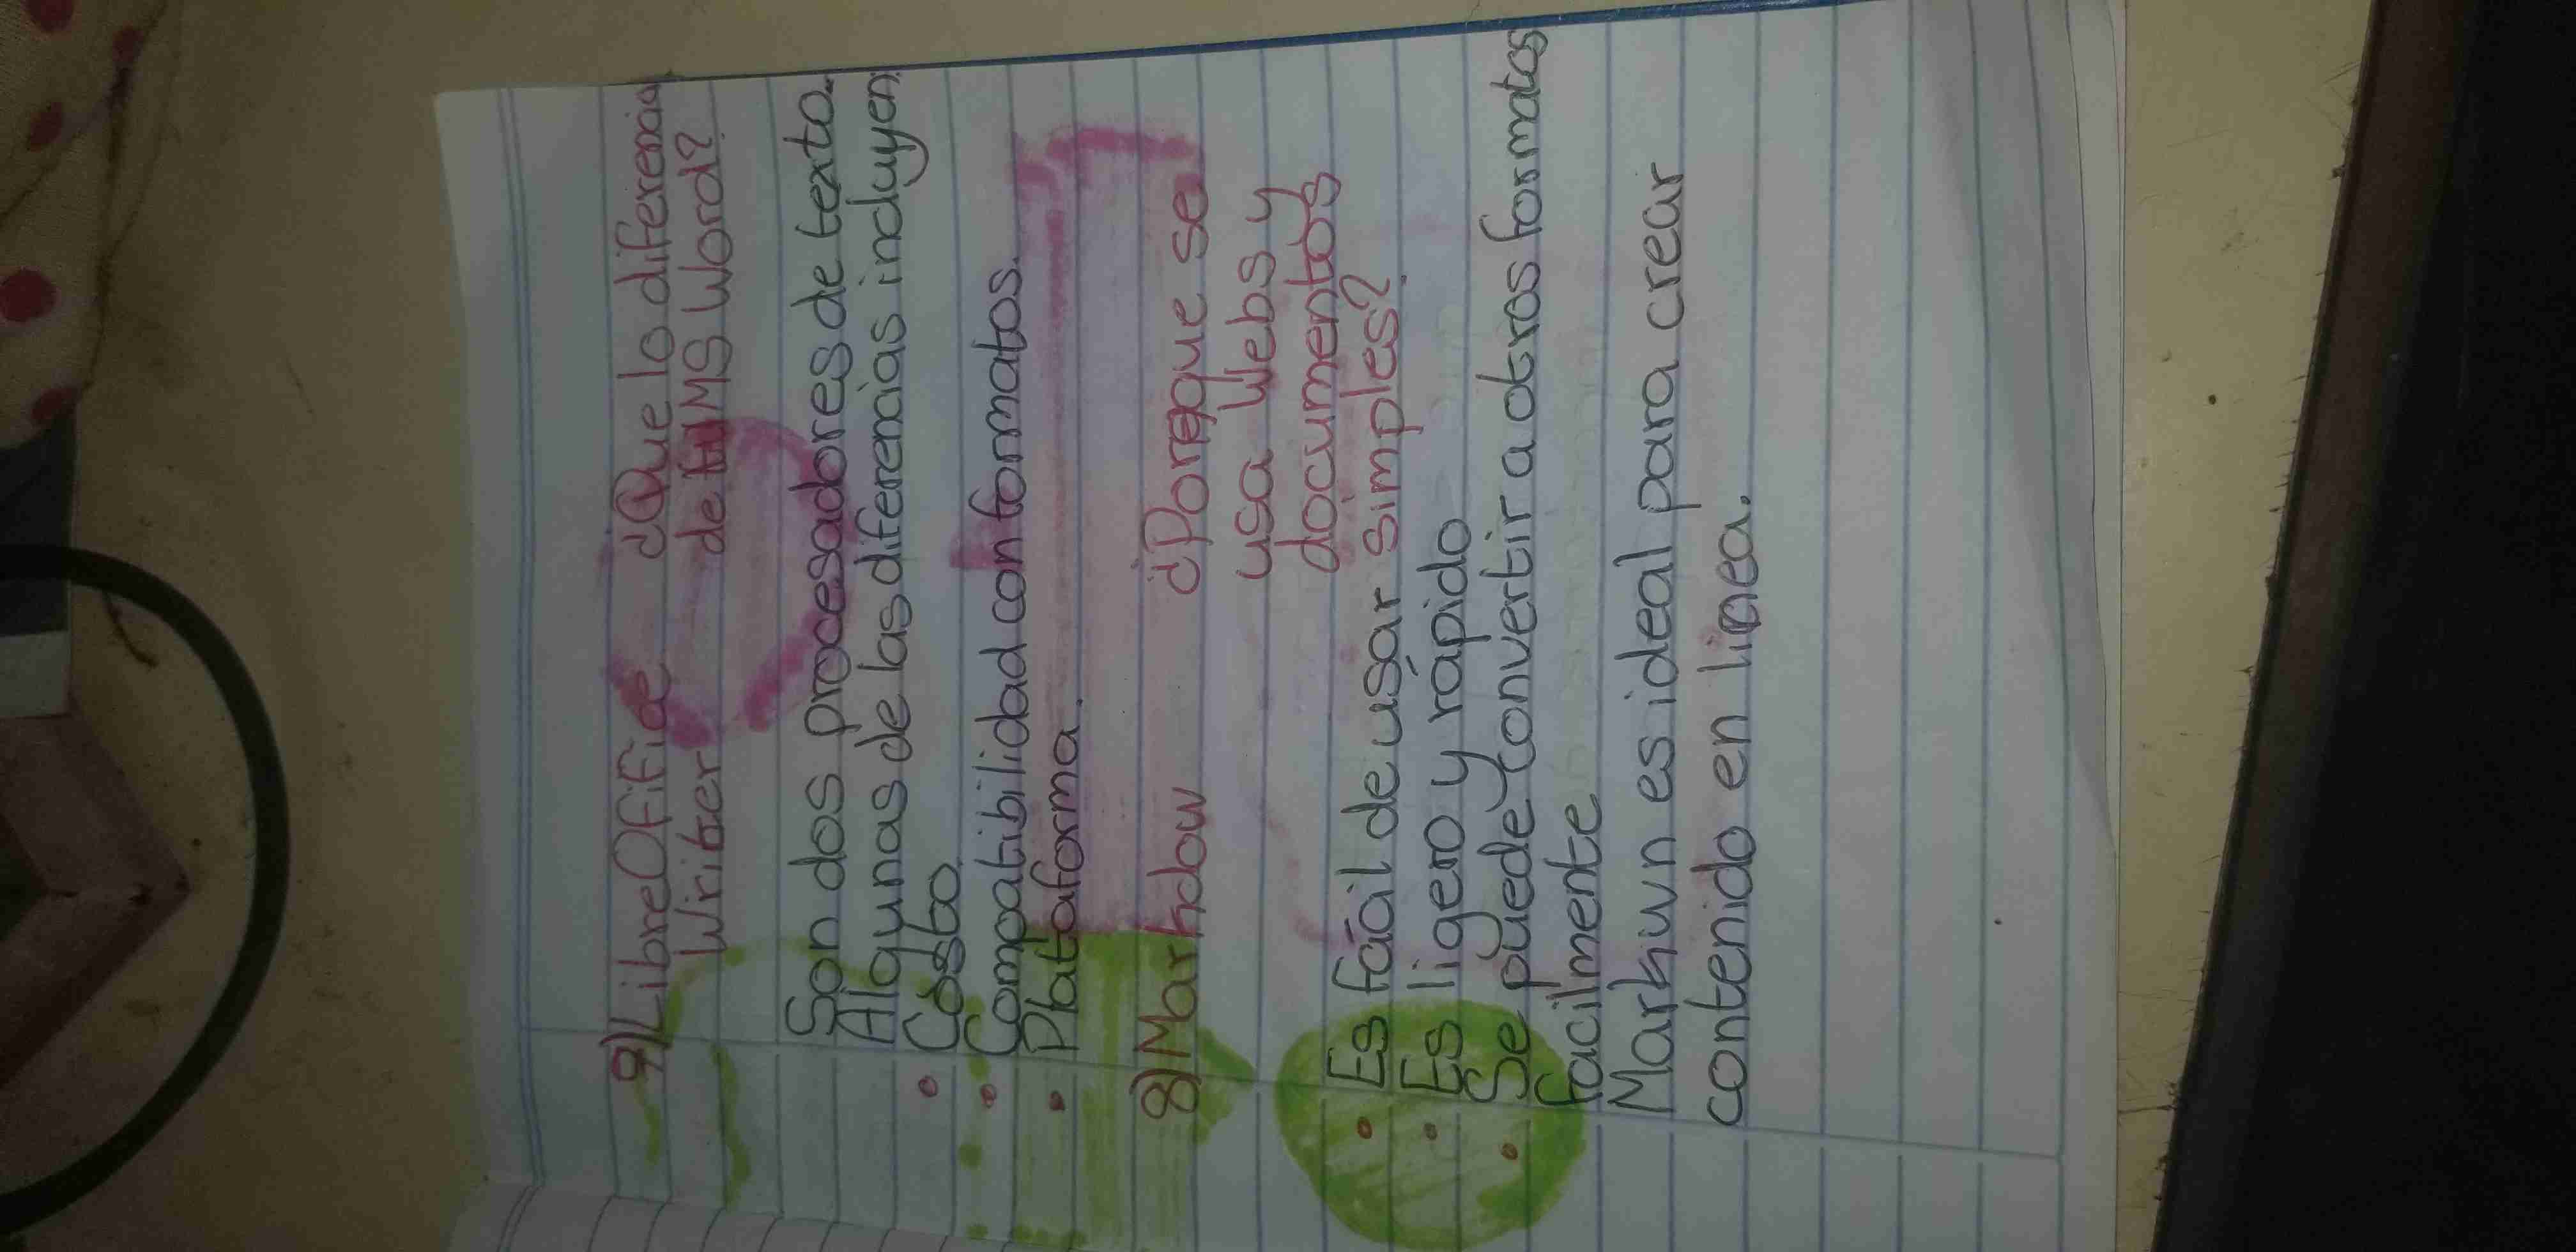 9) LibreOfice ¿Que lo diferencia
Writer de MS Word?
Son dos procesadores de texto.
Algunas de las diferencias incluyen:
• Costo.
• Compatibilidad con formatos.
• Plataforma.
8) Markdow ¿Porque se
usa Webs y
documentos
simples?
• Es fácil de usar
• Es ligero y rápido
• Se puede convertir a otros formatos
facilmente
Markuwn es ideal para crear
contenido en linea.